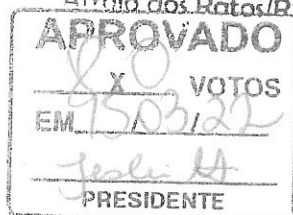 Arroio dos Ratos/R
APROVADO
8 x 0 VOTOS
EM 15/03/22
PRESIDENTE